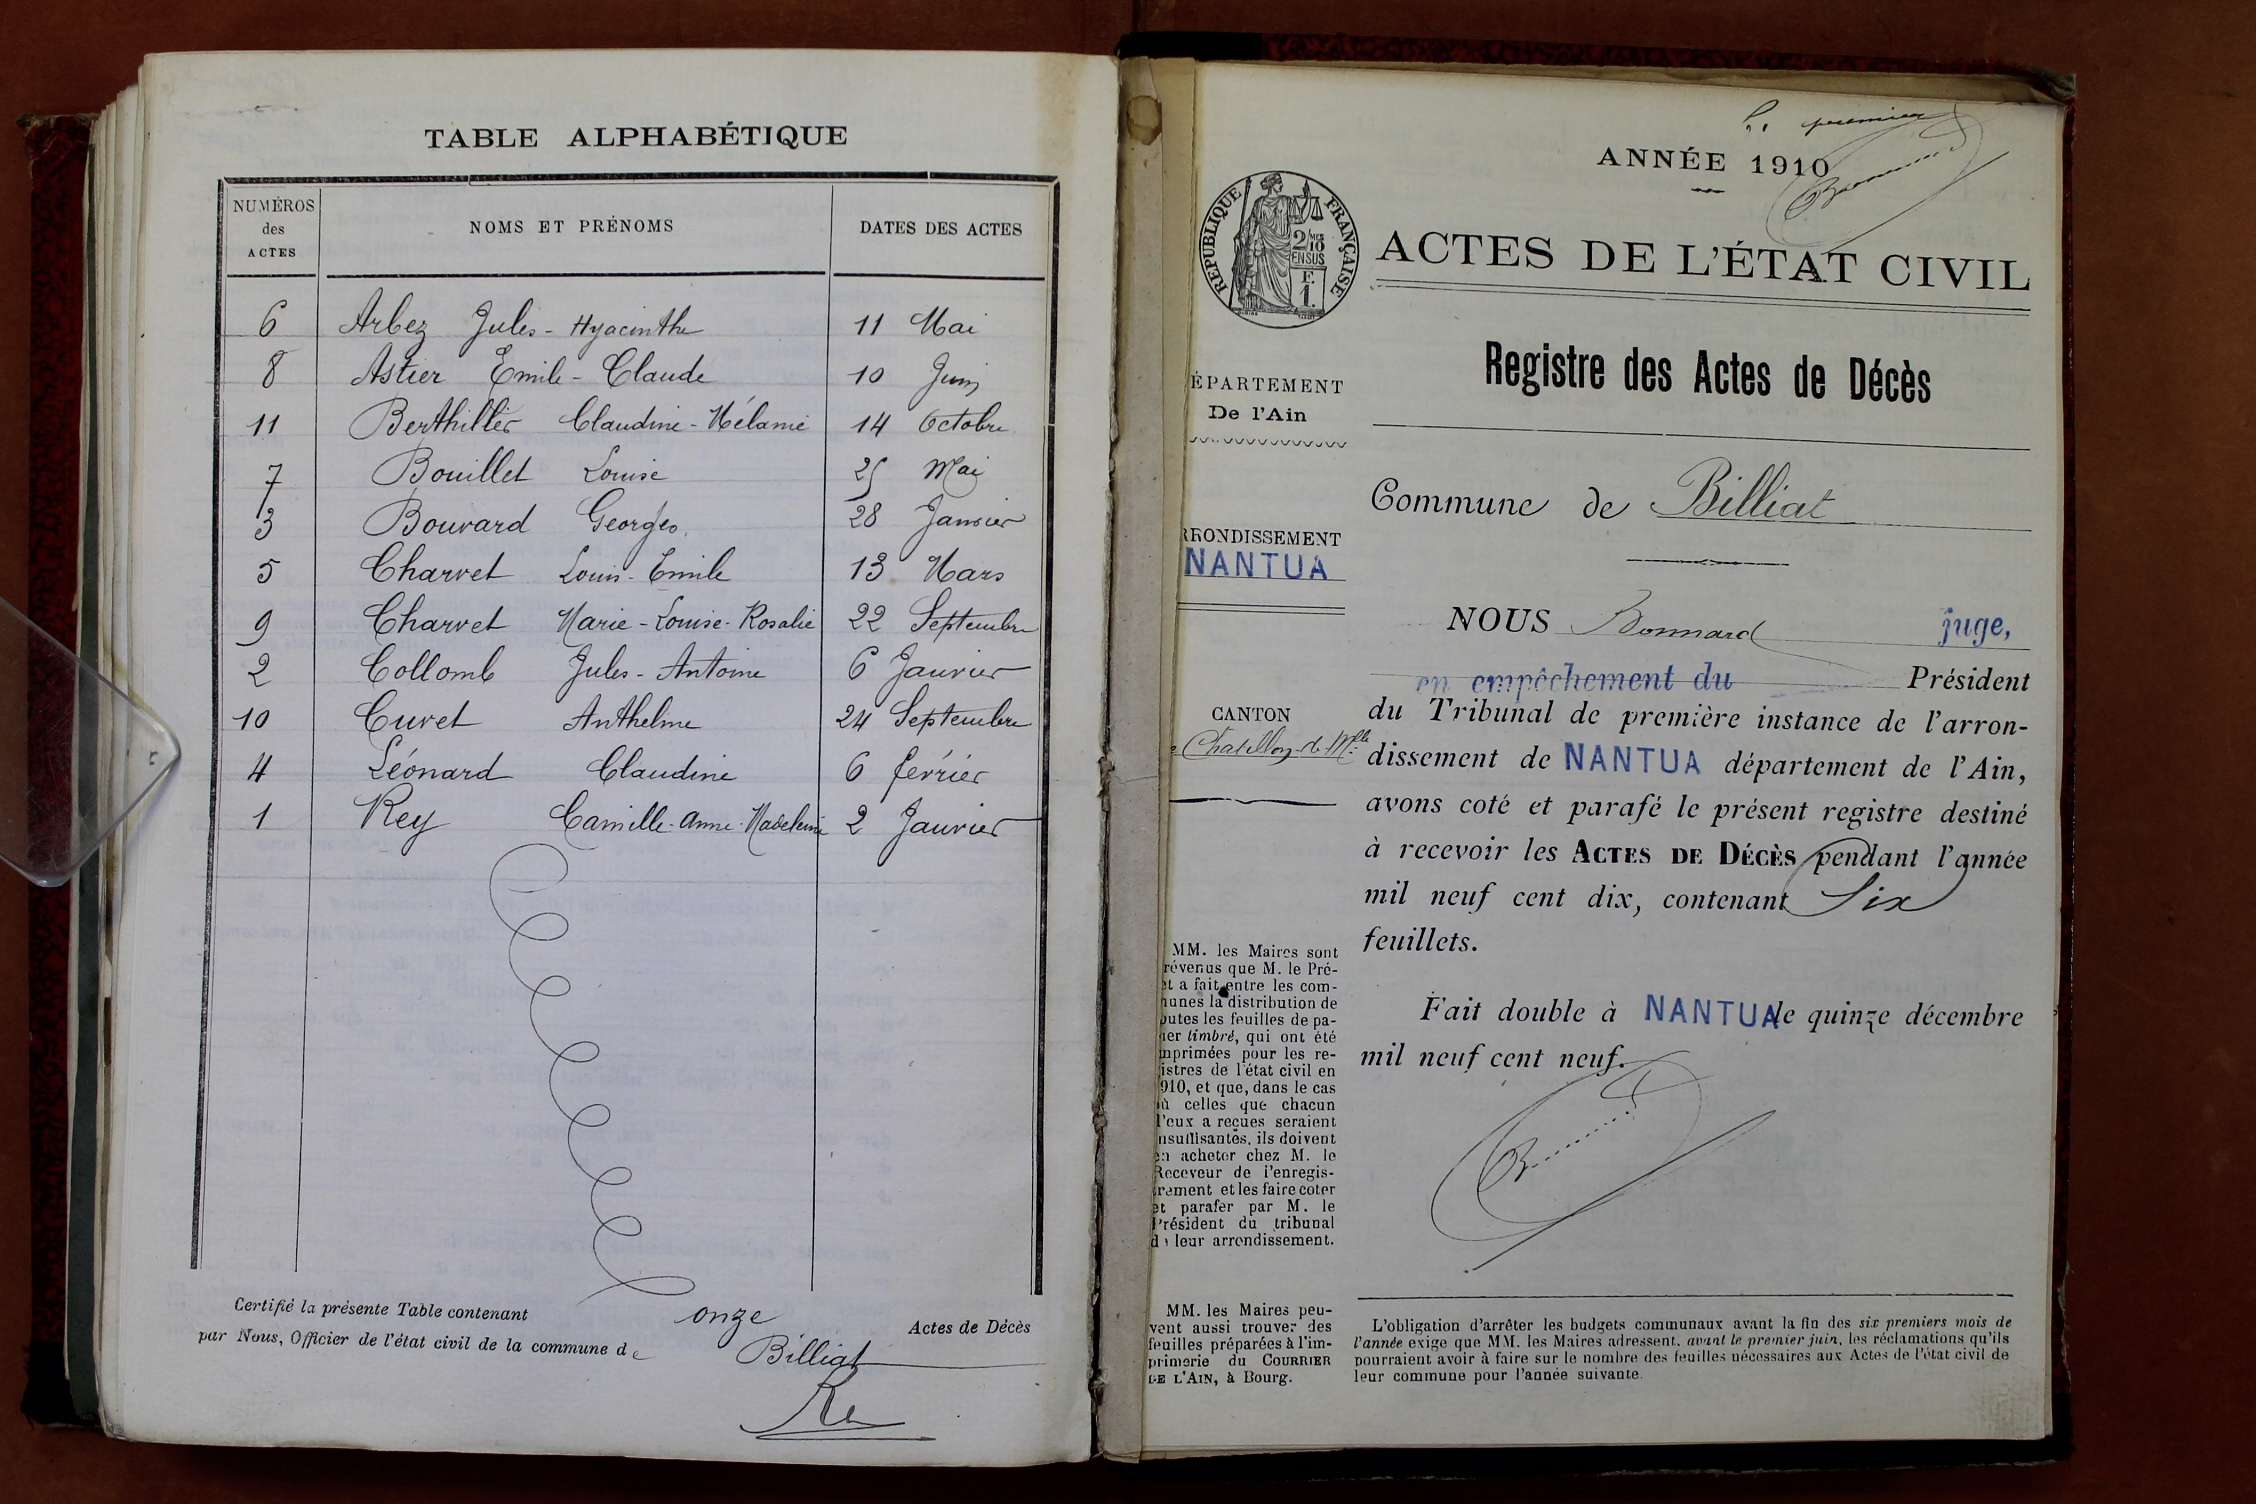 TABLE ALPHABÉTIQUE
NUMÉROS des ACTES NOMS ET PRÉNOMS DATES DES ACTES
6 Arbez Jules-Hyacinthe 11 Mai
8 Astier Emile-Claude 10 Juin
11 Berthillier Claudine-Mélanie 14 Octobre
7 Bouillet Louise 25 Mai
3 Bouvard Georges 28 Janvier
5 Charvet Louis-Emile 13 Mars
9 Charvet Marie-Louise-Rosalie 22 Septembre
2 Collomb Jules-Antoine 6 Janvier
10 Curet Anthelme 24 Septembre
4 Léonard Claudine 6 février
1 Rey Camille-Anne-Madeleine 2 Janvier
Certifié la présente Table contenant onze Actes de Décès
par Nous, Officier de l'état civil de la commune de Billiat
premier
ANNÉE 1910
RÉPUBLIQUE FRANÇAISE
2/10
EN SUS
E.
1.
ACTES DE L'ÉTAT CIVIL
Registre des Actes de Décès
ÉPARTEMENT
De l'Ain
RRONDISSEMENT
NANTUA
CANTON
e Chatillon-de-Mlle
MM. les Maires sont
révenus que M. le Pré-
et a fait entre les com-
munes la distribution de
outes les feuilles de pa-
ier timbré, qui ont été
mprimées pour les re-
istres de l'état civil en
910, et que, dans le cas
ù celles que chacun
l'eux a reçues seraient
nsuffisantes, ils doivent
en acheter chez M. le
Receveur de l'enregis-
trement et les faire coter
et parafer par M. le
Président du tribunal
de leur arrondissement.
MM. les Maires peu-
vent aussi trouver des
feuilles préparées à l'im-
primerie du COURRIER
DE L'AIN, à Bourg.
Commune de Billiat
NOUS Bonnard juge,
en empêchement du Président
du Tribunal de première instance de l'arron-
dissement de NANTUA département de l'Ain,
avons coté et parafé le présent registre destiné
à recevoir les ACTES DE DÉCÈS pendant l'année
mil neuf cent dix, contenant Six
feuillets.
Fait double à NANTUA le quinze décembre
mil neuf cent neuf.
L'obligation d'arrêter les budgets communaux avant la fin des six premiers mois de
l'année exige que MM. les Maires adressent, avant le premier juin, les réclamations qu'ils
pourraient avoir à faire sur le nombre des feuilles nécessaires aux Actes de l'état civil de
leur commune pour l'année suivante.